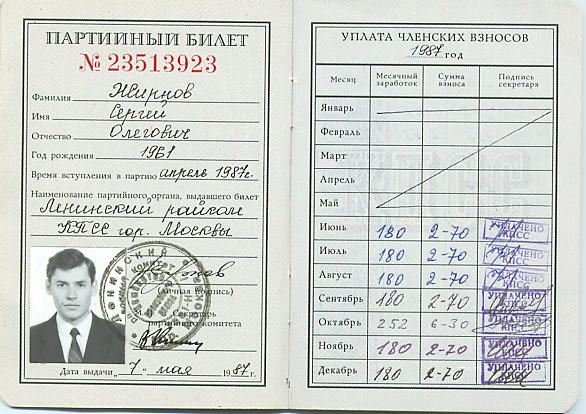 ПАРТИЙНЫЙ БИЛЕТ
№ 23513923
Фамилия Жирнов
Имя Сергей
Отчество Олегович
Год рождения 1961
Время вступления в партию апрель 1987г.
Наименование партийного органа, выдавшего билет
Ленинский райком
КПСС гор. Москвы
(Личная подпись)
Секретарь
партийного комитета
Дата выдачи „7" мая 1987г.
УПЛАТА ЧЛЕНСКИХ ВЗНОСОВ
1987 год
Месяц Месячный заработок Сумма взноса Подпись секретаря
Январь
Февраль
Март
Апрель
Май
Июнь 180 2-70 УПЛАЧЕНО КПСС
Июль 180 2-70 УПЛАЧЕНО КПСС
Август 180 2-70 УПЛАЧЕНО КПСС
Сентябрь 180 2-70 УПЛАЧЕНО КПСС
Октябрь 252 6-30 УПЛАЧЕНО КПСС
Ноябрь 180 2-70 УПЛАЧЕНО КПСС
Декабрь 180 2-70 УПЛАЧЕНО КПСС